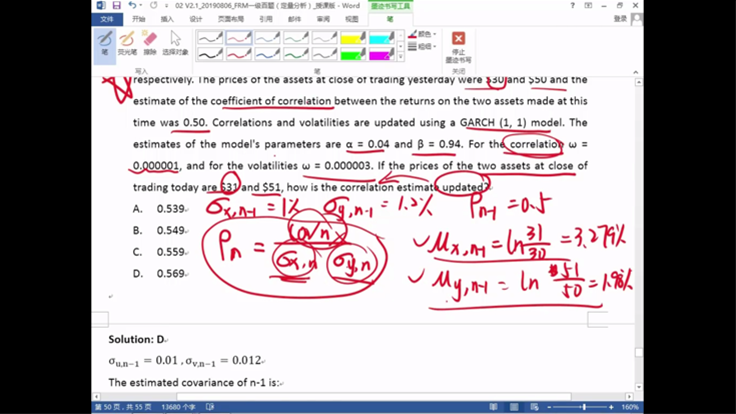 02 V2.1_20190806_FRM一级百题（定量分析）_授课版 - Word
墨迹书写工具
文件 开始 插入 设计 页面布局 引用 邮件 审阅 视图 笔 登录
笔 荧光笔 擦除 选择对象
颜色
粗细
停止
墨迹书写
写入 笔 关闭
respectively. The prices of the assets at close of trading yesterday were $30 and $50 and the
estimate of the coefficient of correlation between the returns on the two assets made at this
time was 0.50. Correlations and volatilities are updated using a GARCH (1, 1) model. The
estimates of the model's parameters are α = 0.04 and β = 0.94. For the correlation ω =
0.000001, and for the volatilities ω = 0.000003. If the prices of the two assets at close of
trading today are $31 and $51, how is the correlation estimate updated?
σx,n-1 = 1% σy,n-1 = 1.2% ρn-1 = 0.5
A. 0.539
B. 0.549
C. 0.559
D. 0.569
ρn = covn / σx,n σy,n
μx,n-1 = ln 31/30 = 3.279%
μy,n-1 = ln $51/50 = 1.98%
Solution: D
σu,n−1 = 0.01 , σv,n−1 = 0.012
The estimated covariance of n-1 is:
第 50 页，共 55 页 13680 个字 160%